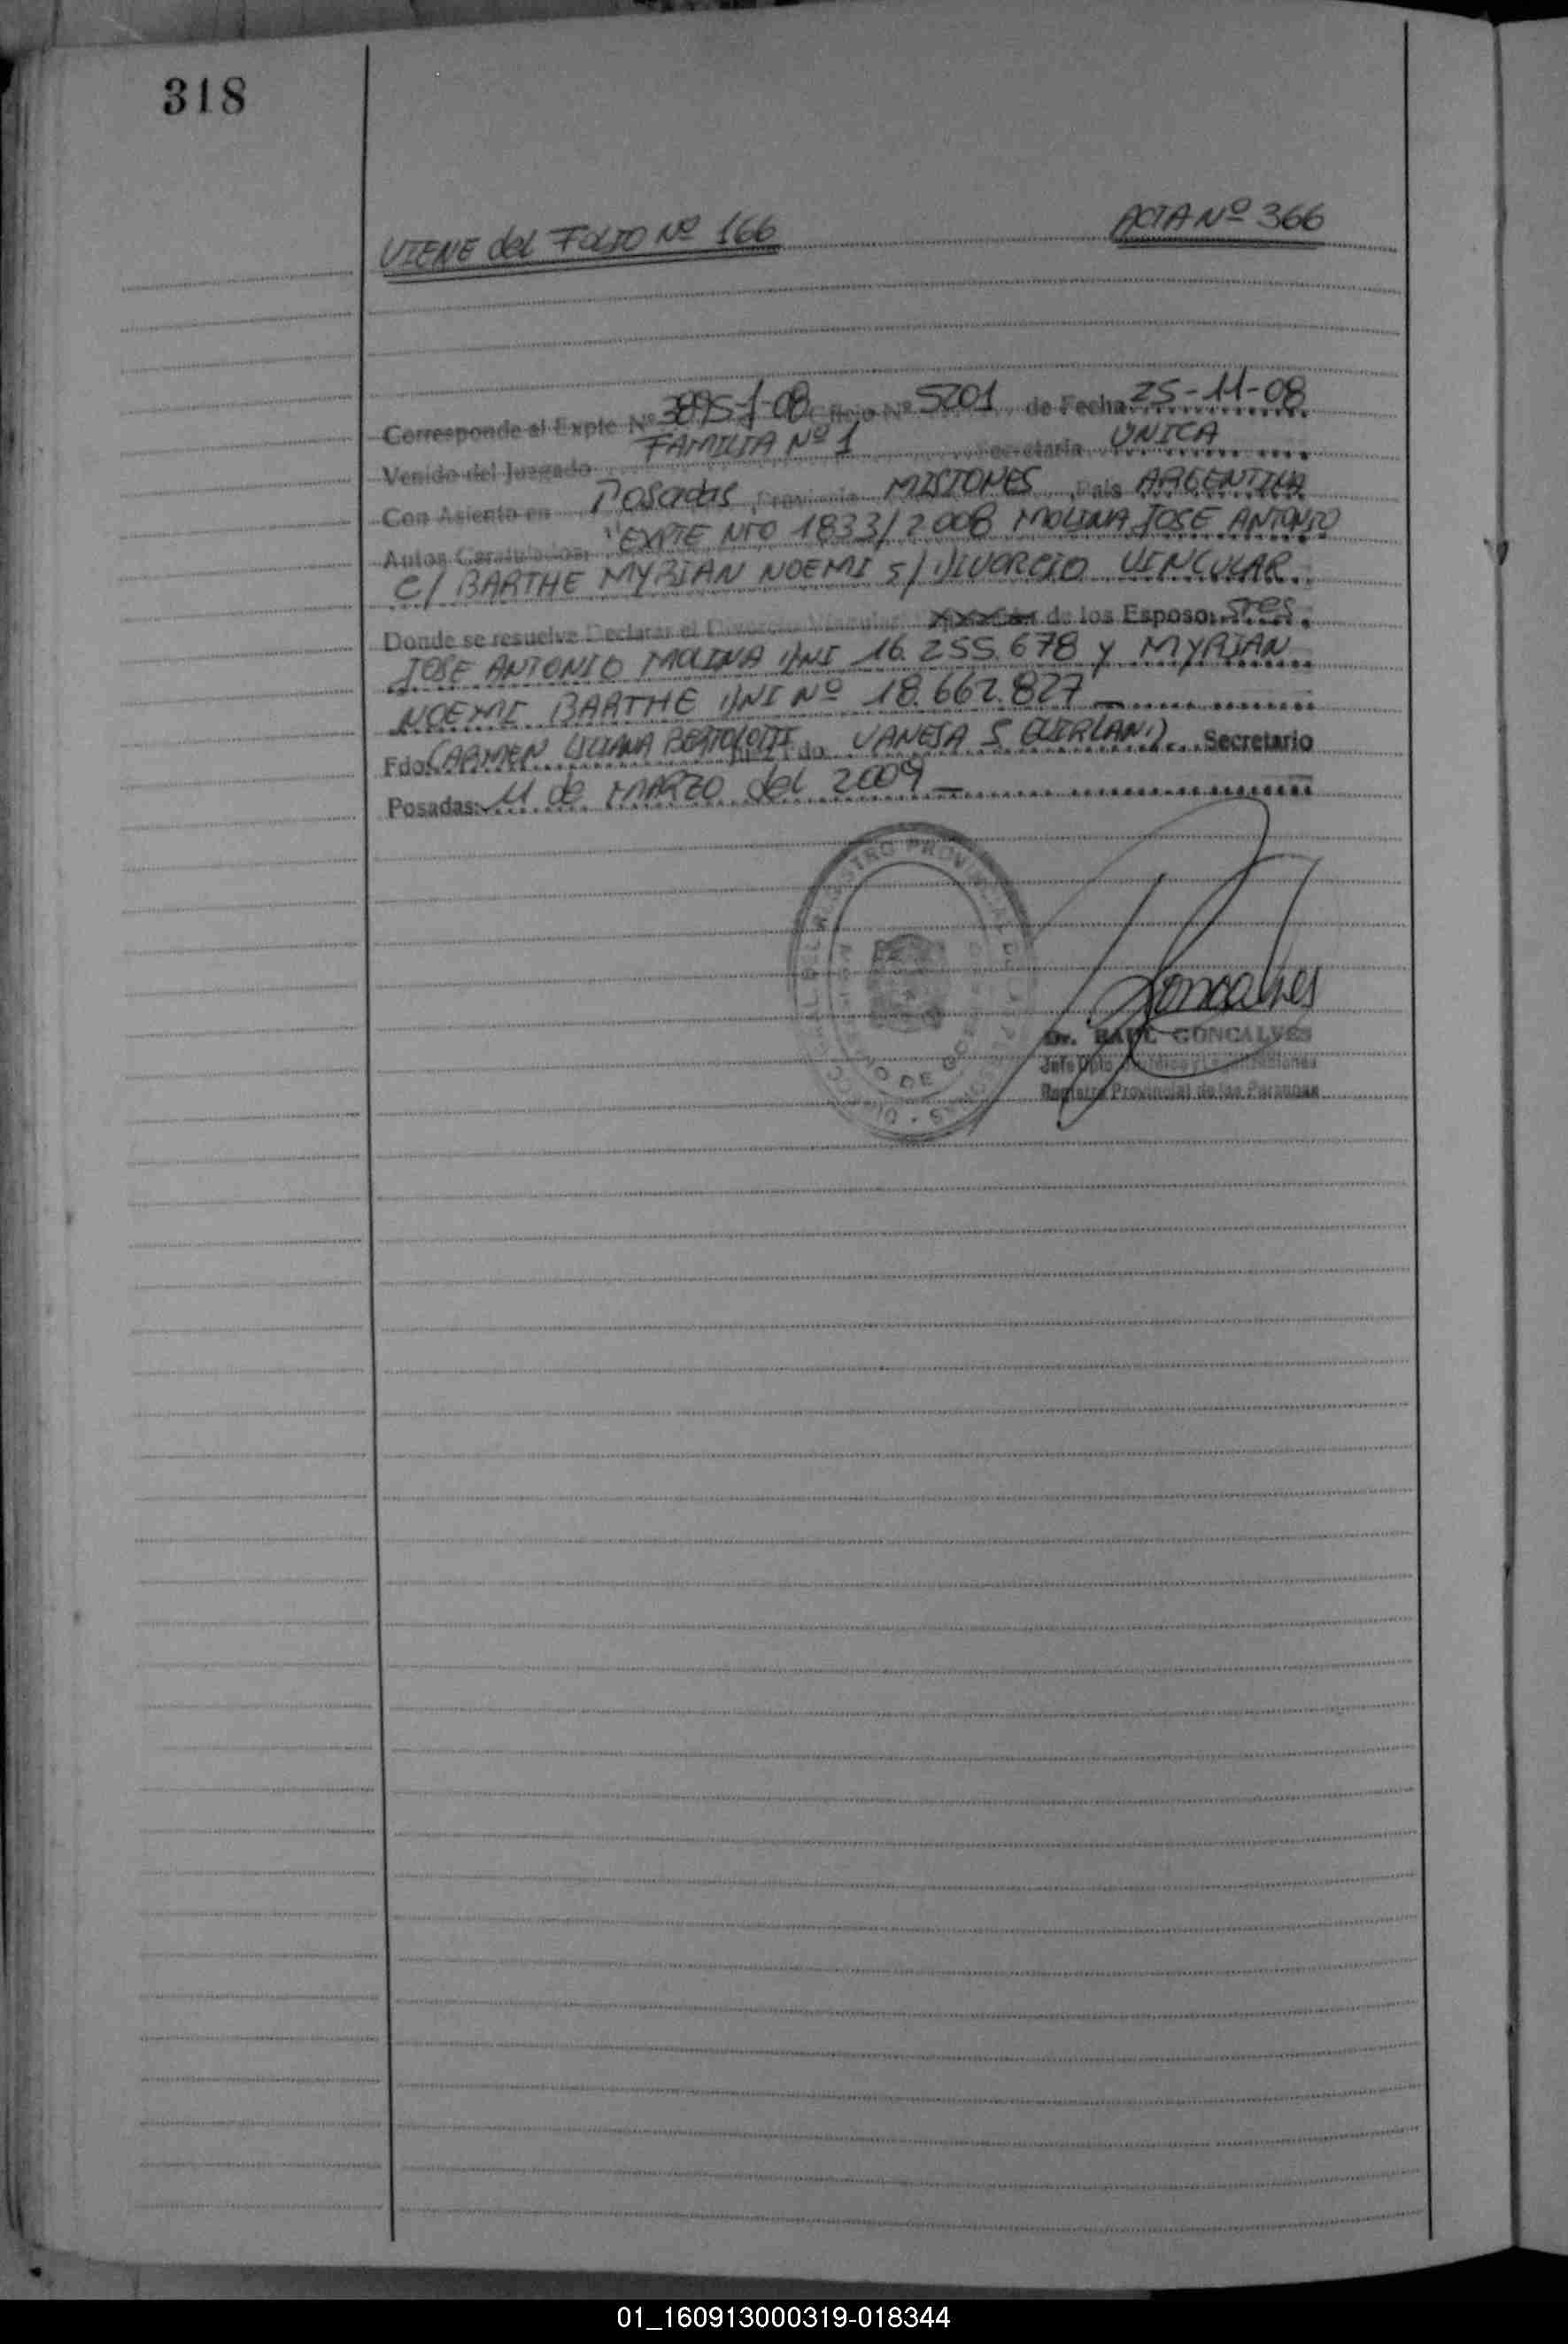 318
VIENE del FOLIO Nº 166 ACTA Nº 366
Corresponde al Expte Nº 3895-J-08 Oficio Nº 5201 de Fecha 25-11-08
Venido del Juzgado FAMILIA Nº 1 Secretaria UNICA
Con Asiento en Posadas, Provincia MISIONES, Pais ARGENTINA
Autos Caratulados: "EXPTE NRO 1833/2008 MOLINA JOSE ANTONIO
C/ BARTHE MYRIAN NOEMI S/ DIVORCIO VINCULAR.
Donde se resuelve Declarar el Divorcio Vincular de los Esposo: sres.
JOSE ANTONIO MOLINA DNI 16.255.678 y MYRIAN
NOEMI BARTHE DNI Nº 18.662.827
Fdo: CARMEN LILIANA BERTOLOTTI Fdo. VANESA S Secretario
Posadas: 11 de MARZO del 2009
REGISTRO PROVINCIAL DE LAS PERSONAS
Goncalves
Dr. RAUL GONCALVES
Jefe Dpto
Registro Provincial de las Personas
01_160913000319-018344